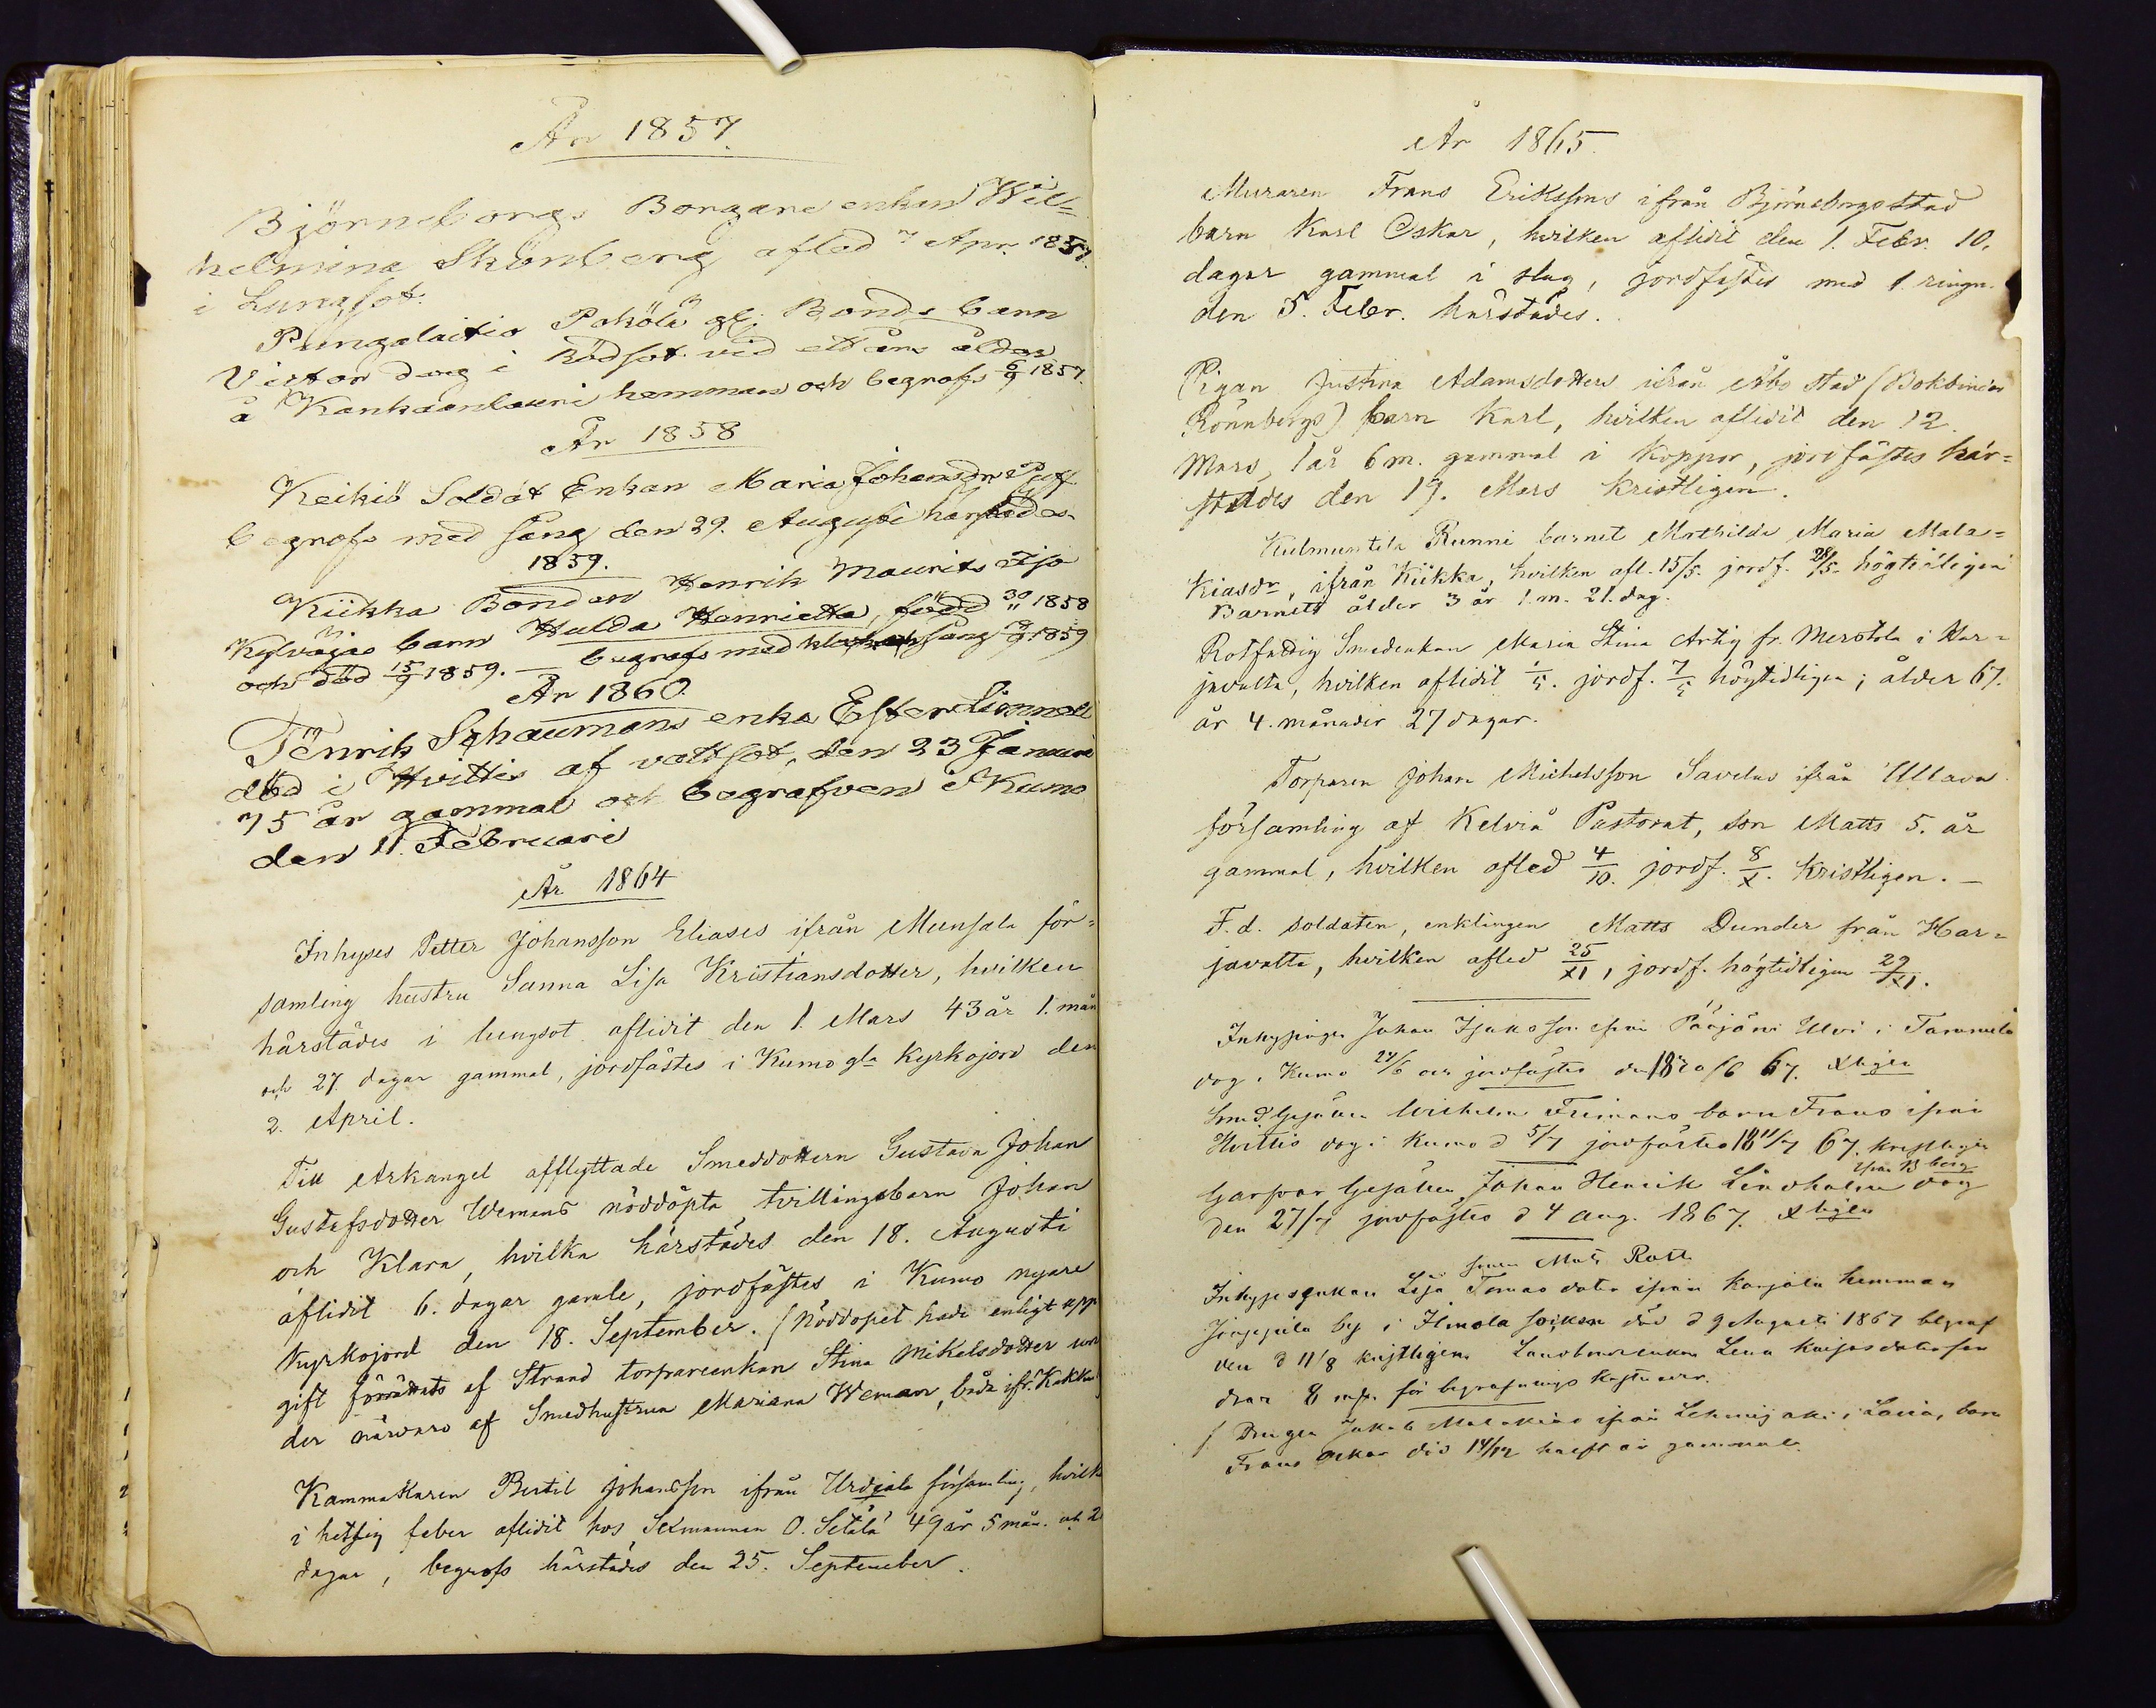 År 1857.
Björneborgs Borgare enkan Wil=
helmina Skönberg afled 7 Apr. 1857.
i Lungsot.
Pungalaitio Pohölä gl. Bonde barn
Victor dog i Rödsot vid ett års ålder
å Kankaanlauri hemman och begrofs 6/9 1857.
År 1858
Keikiö Soldat Enkan Maria Johansdr
begrofs med sång den 29. Augusti härstädes
1859.
Kiikka Bonden Henrik Maurits
Kylvöjäs barn Hulda Henrietta, född 30/11 1858
och död 15/9 1859. — begrofs med sång 1859
År 1860
Henrik Schaumans enka Ester
död i Hvittis af vattsot, den 23 Januari
75 år gammal och begrafven i Kumo
den 11. Februari
År 1864
Inhyses Petter Johansson Eliases ifrån Munsala för=
samling hustru Sanna Lisa Kristiansdotter, hvilken
härstädes i lungsot aflidit den 1. Mars 43 år 1. mån
och 27. dagar gammal, jordfästes i Kumo gla Kyrkojord den
2. April.
Till Arkangel afflyttade Smeddottern Gustava Johan
Gustafsdotter Wemans nöddöpta tvillingabarn Johan
och Klara, hvilka härstädes den 18. Augusti
aflidit 6. dagar gamle, jordfästes i Kumo nyare
Kyrkojord den 18. September. (Nöddopet hade enligt upp
gift förrättats af Strand torpareenkan Stina Mikelsdotter un
der närvaro af Smedhustrun Mariana Weman, båda ifr. Kakku
Kammakaren Bertil Johansson ifrån Urdiala församling, hvilk
i hetsig feber aflidit hos Sexmannen O. Setälä 49 år 5 mån. och 2
dagar, begrofs härstädes den 25. September.
År 1865.
Muraren Frans Erikssons ifrån Björneborgs stad
barn Karl Oskar, hvilken aflidit den 1. Febr. 10.
dagar gammal i slag, jordfästes med 1. ringn.
den 5. Febr. härstädes.
Pigan Justina Adamsdotters ifrån Åbo stad (Bokbindar
Rönnbergs) barn Karl, hvilken aflidit den 12.
Mars, 1 år 6 m. gammal i koppor, jordfästes här=
städes den 19. Mars kristligen.
Kulmuntila Runni barnet Mathilda Maria Mala=
kiasdr, ifrån Kiikka, hvilken afl. 15/5. jordf. 28/5. högtidligen
Barnets ålder 3 år 1. m. 21. dag.
Rotfattig Smedenkan Maria Stina Artig fr. Merstola i Har=
javalta, hvilken aflidit 1/5. jordf. 7/5 högtidligen; ålder 67.
år 4. månader 27 dagar.
Torparen Johan Michelsson Savelas ifrån Ullava
församling af Kelviå Pastorat, son Matts 5. år
gammal, hvilken afled 4/10. jordf. 8/X. kristligen. —
F. d. soldaten, enklingen Matts Dunder från Har=
javalta, hvilken afled 25/XI, jordf. högtidligen 29/XI.
Inhysingen Johan Isaksson ifrån Pärjäni Ulvi i Tammela
dog i Kumo 24/6 och jordfästes den 18 30/6 67. Xligen
Smed Gesällen Wilhelm Freimans barn Frans ifrån
Hvittis dog i Kumo d 5/7 jordfästes 18 11/7 67. kristligen
Garfvar Gesällen Johan Henrik Lindholm ifrån B berg dog
den 27/7 jordfästes d 4 Aug. 1867. Xligen
Inhyses enkan Lisa Tomas dotter ifrån Karjala hemman
by i Ilmola socken död d 9 Augusti 1867 begraf
ven d 11/8 kristligen. Lena
8 för begrafnings
Drengen Jakob Malakias ifrån i Lavia, barn
Frans Oskar död 14/12 halft år gammal.